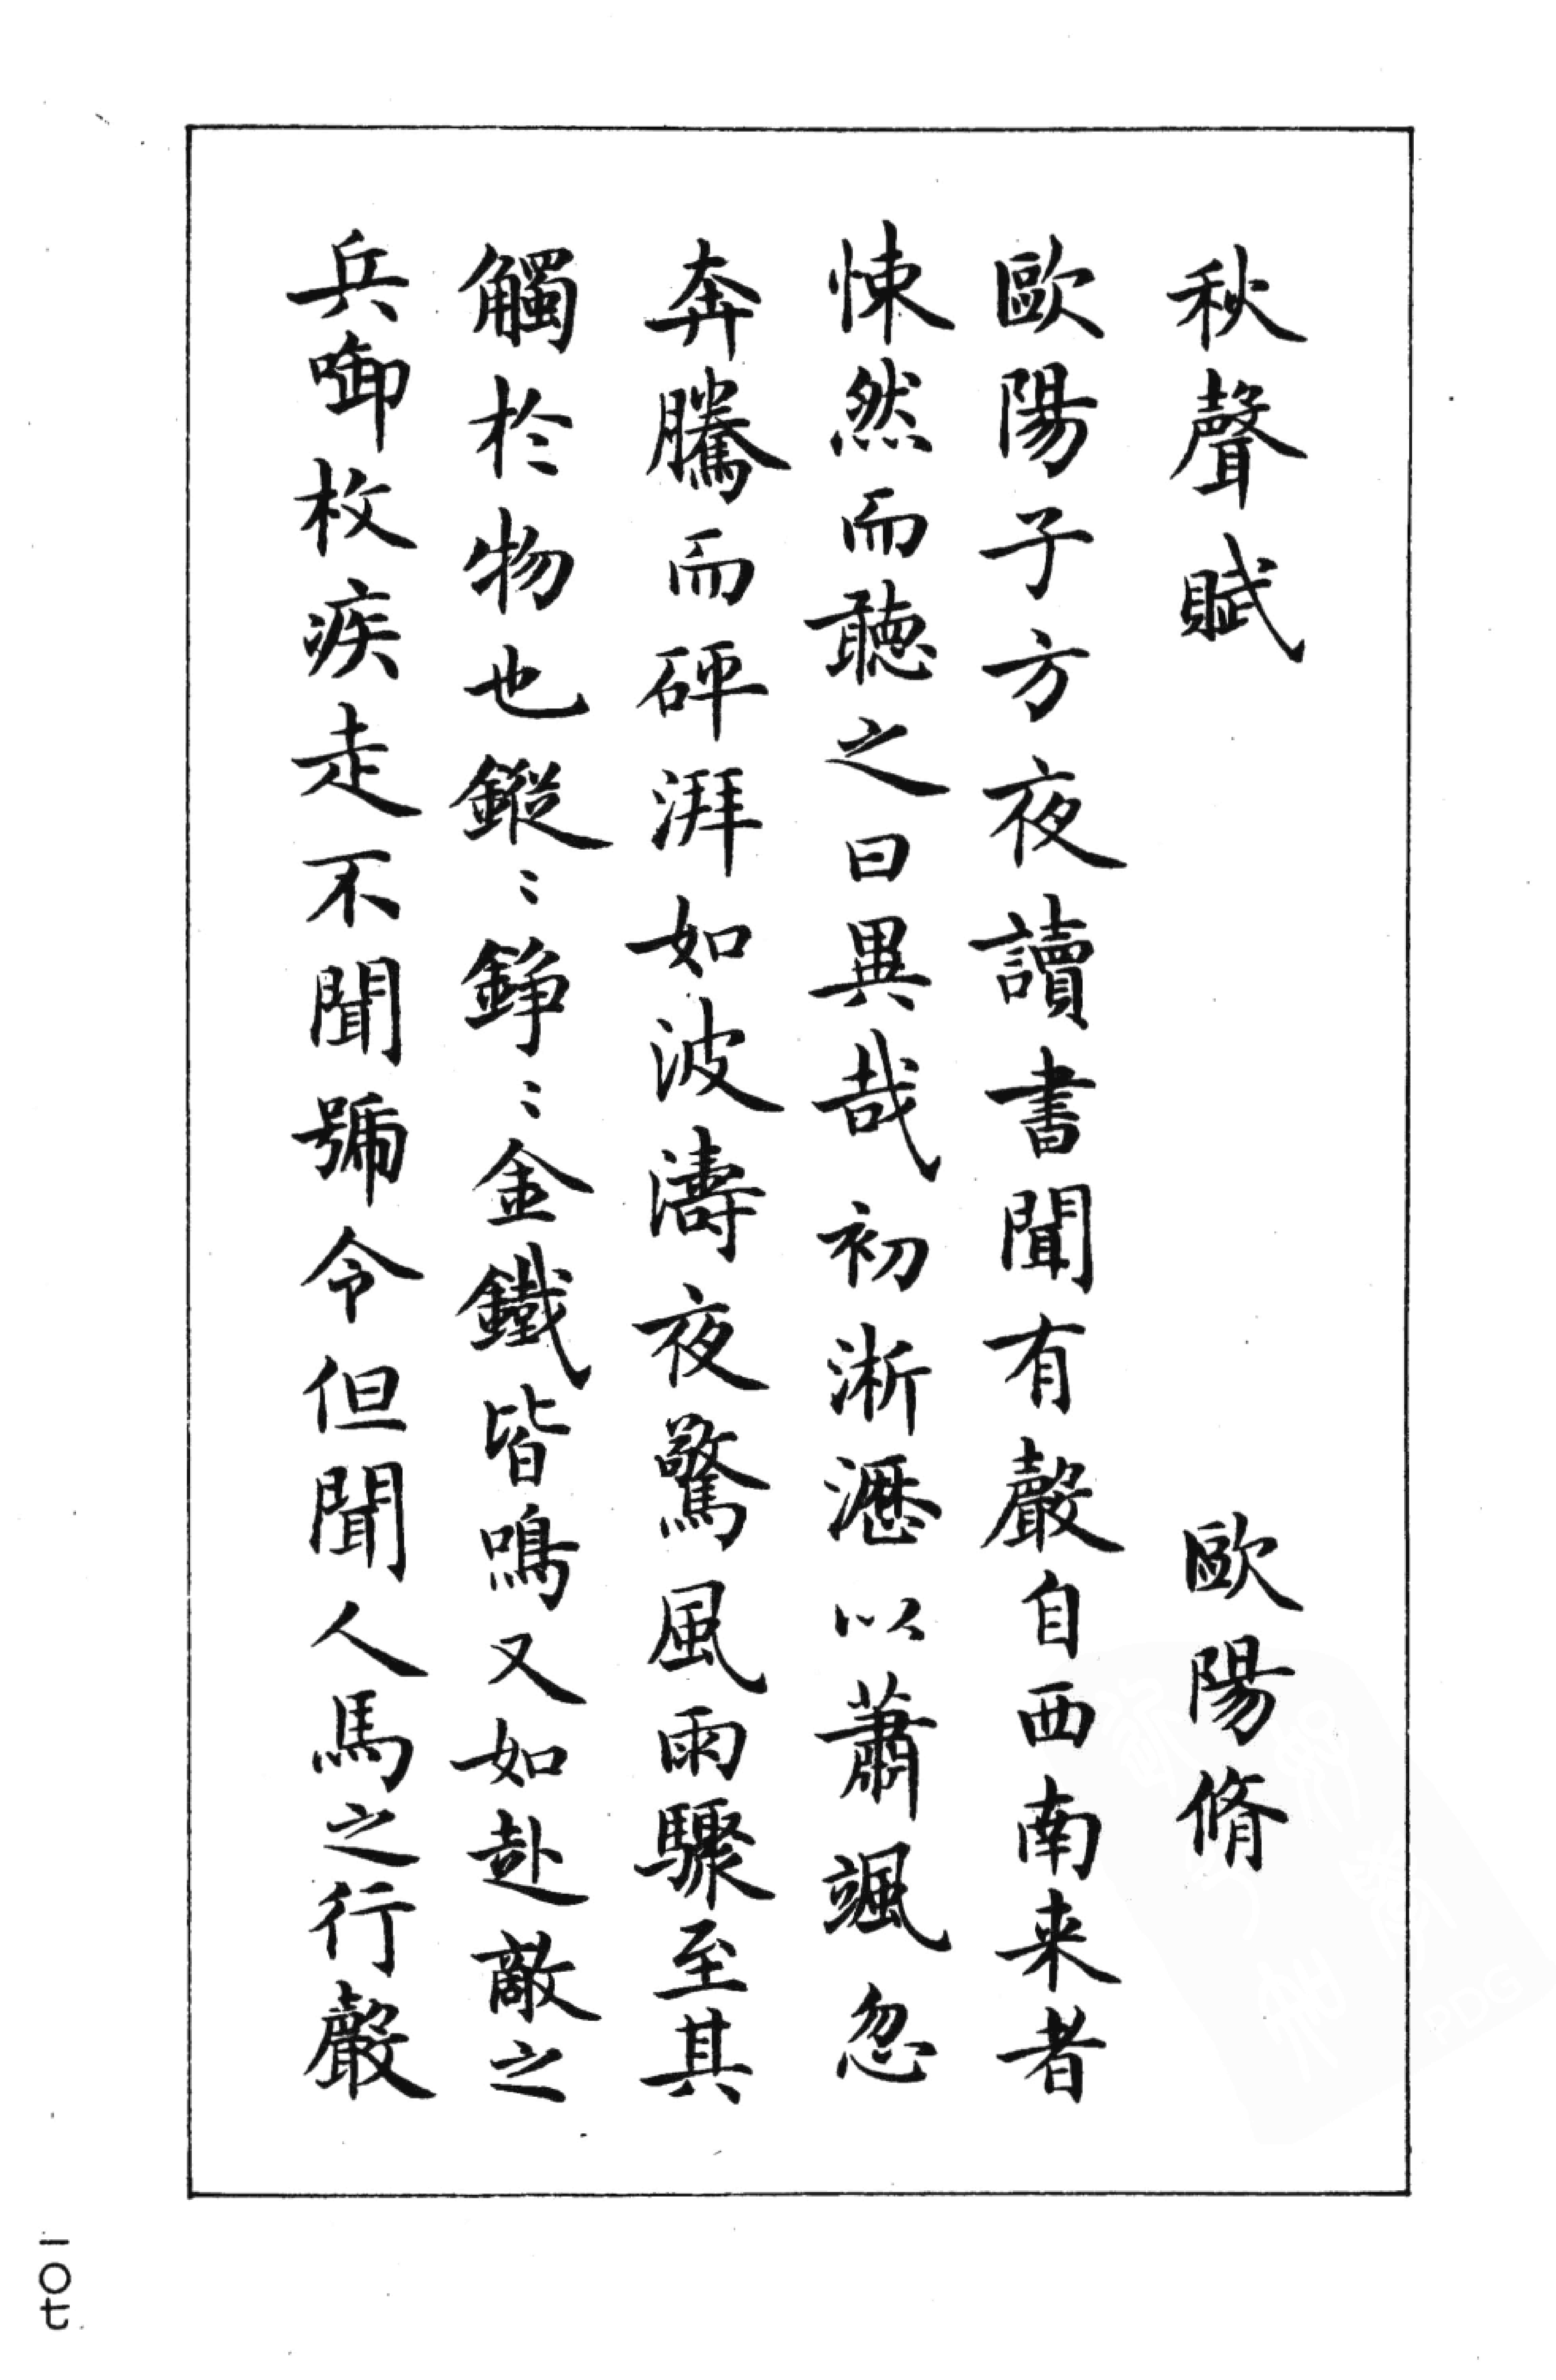 秋聲賦 歐陽脩
歐陽子方夜讀書聞有聲自西南来者
悚然而聽之曰異哉初淅瀝以蕭颯忽
奔騰而砰湃如波濤夜驚風雨驟至其
觸於物也鏦〻錚〻金鐵皆鳴又如赴敵之
兵啣枚疾走不聞號令但聞人馬之行聲
一〇七
PDG